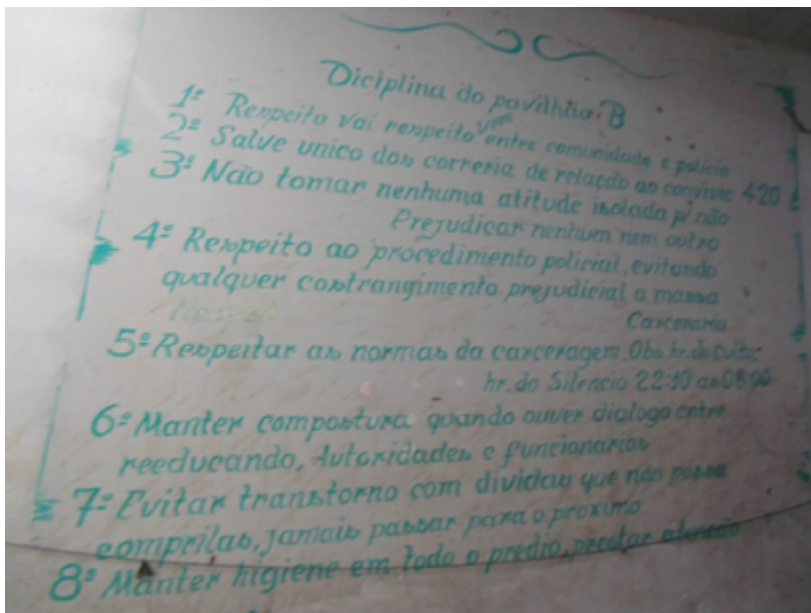 Diciplina do pavilhão. B
1º Respeito vai respeito vem entre comunidade e policia
2º Salve unico dos correria de relação ao convivio 4:20
3º Não tomar nenhuma atitude isolada p/ não
Prejudicar nenhum nem outro
4º Respeito ao procedimento policial, evitando
qualquer costrangimento prejudicial a massa
Carceraria
5º Respeitar as normas da carceragem. Obs. hr. do Culto:
hr. do Silencio 22:10 as 08:00
6º Manter compostura quando ouver dialogo entre
reeducando, Autoridades e funcionarios
7º Evitar transtorno com dividas que não possa
comprilas, jamais passar para o proximo
8º Manter higiene em todo o predio, prestar atenção